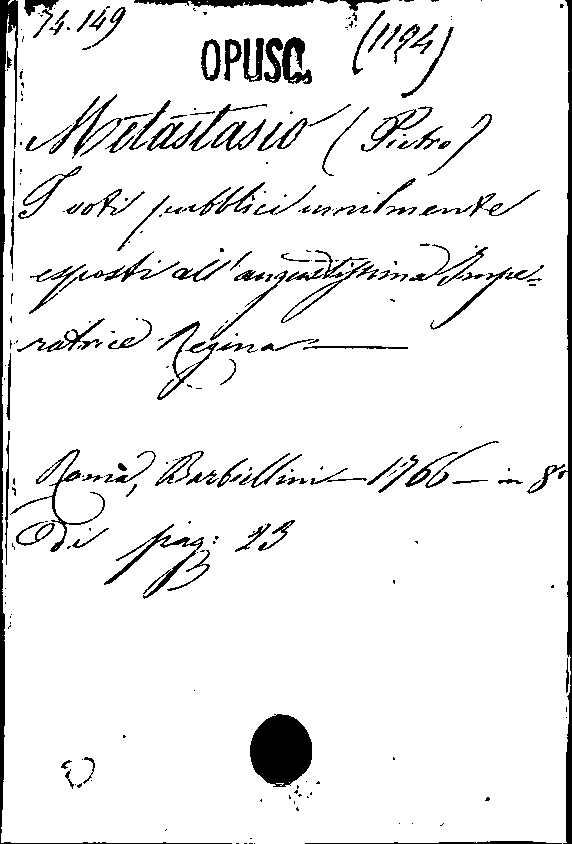 74.149
OPUSC. (1194)
Metastasio (Pietro)
I voti pubblici umilmente
esposti all'augustissima Impe-
ratrice Regina —
Roma, Barbiellini — 1766 — in 8°
di pag: 23